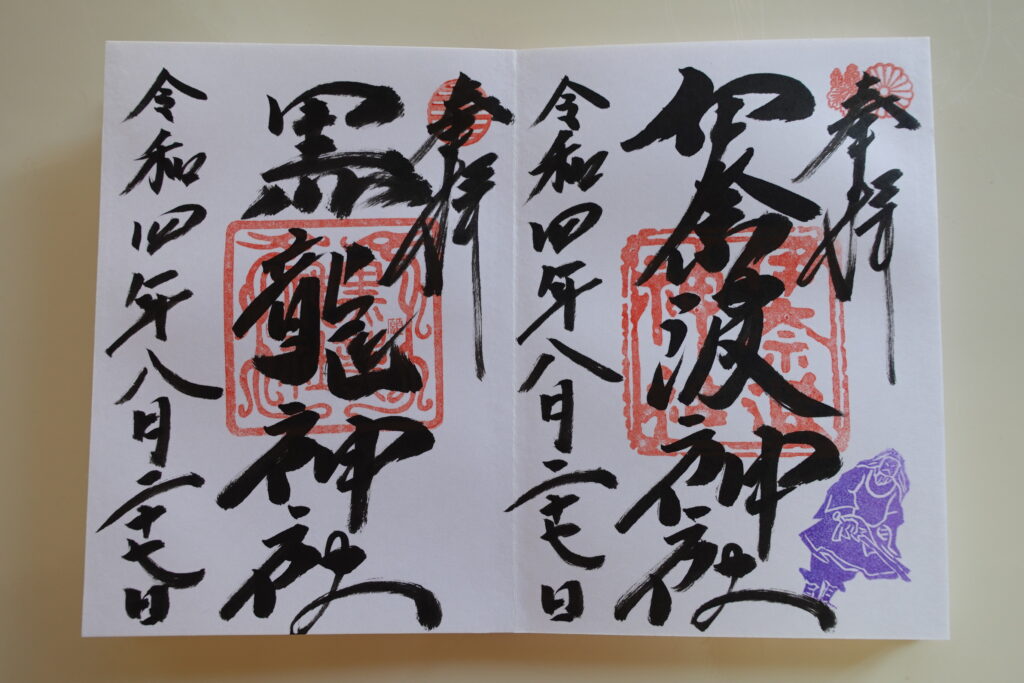 奉拝
伊奈波神社
令和四年八月二十七日
奉拝
黒龍神社
令和四年八月二十七日